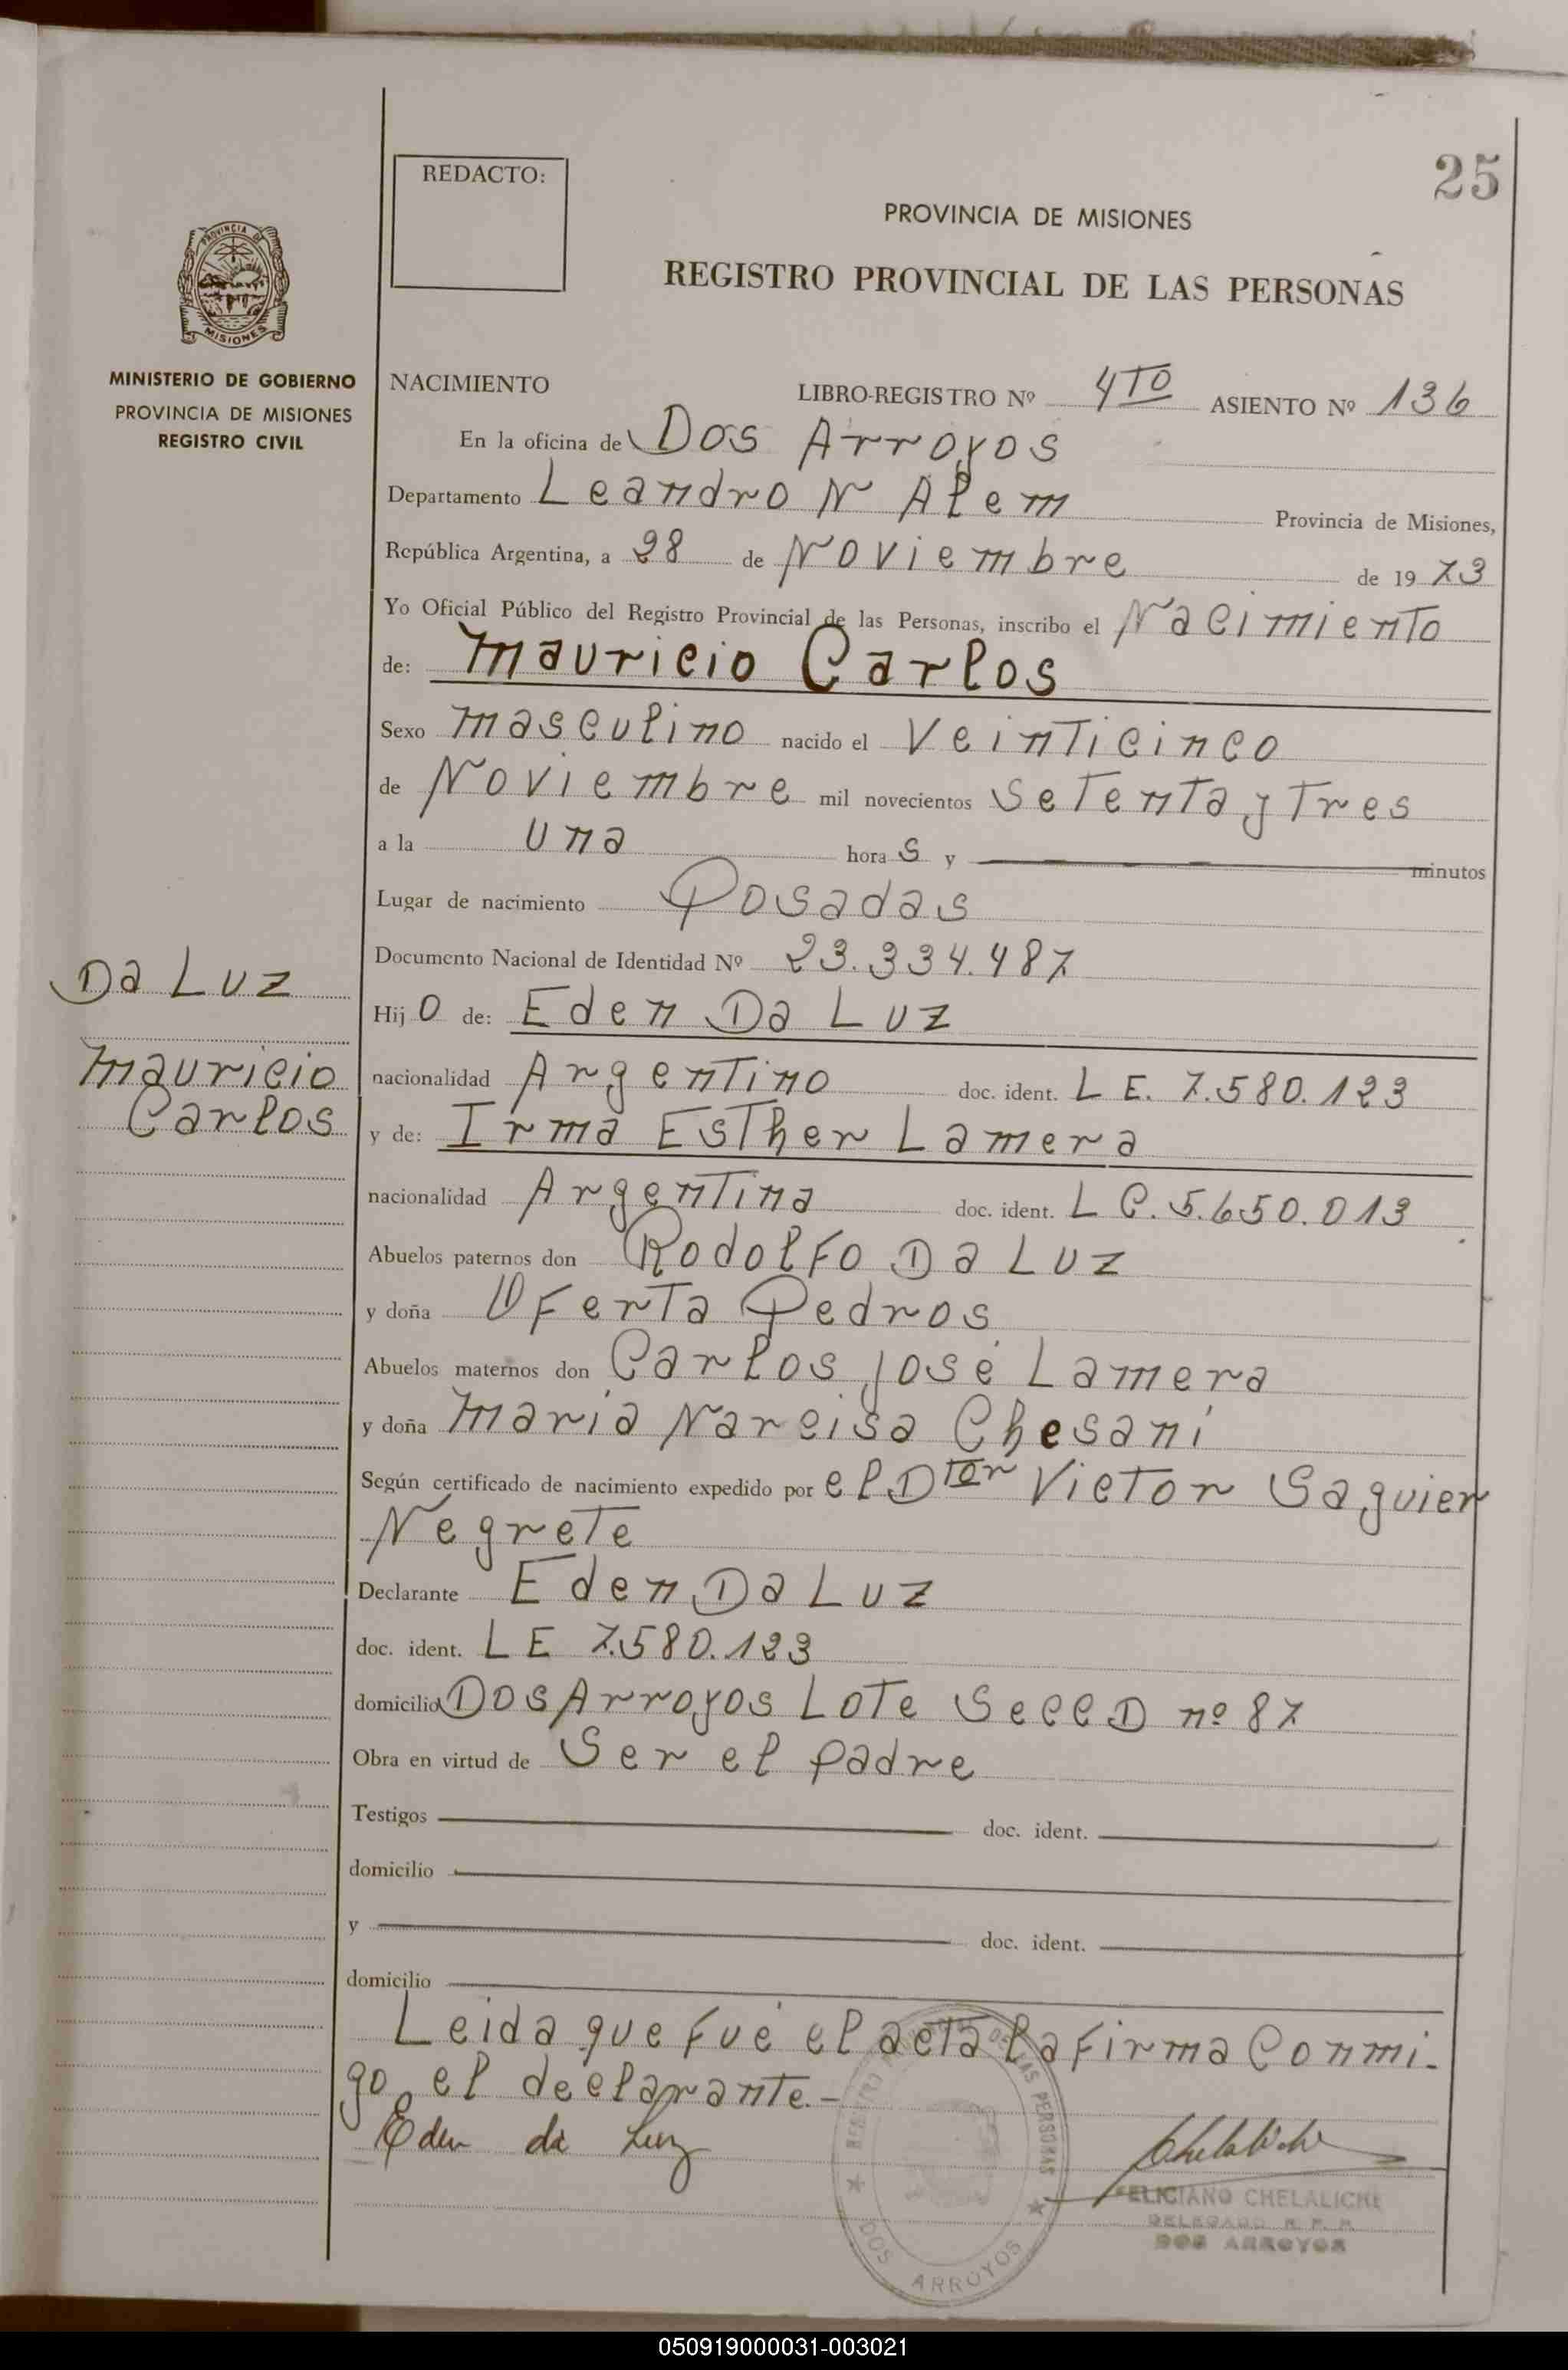 25
REDACTO:
PROVINCIA DE MISIONES
REGISTRO PROVINCIAL DE LAS PERSONAS
PROVINCIA DE
MISIONES
MINISTERIO DE GOBIERNO
PROVINCIA DE MISIONES
REGISTRO CIVIL
NACIMIENTO LIBRO-REGISTRO Nº 4TO ASIENTO Nº 136
En la oficina de Dos Arroyos
Departamento Leandro N Alem Provincia de Misiones,
República Argentina, a 28 de Noviembre de 1973
Yo Oficial Público del Registro Provincial de las Personas, inscribo el Nacimiento
de: Mauricio Carlos
Sexo Masculino nacido el Veinticinco
de Noviembre mil novecientos Setenta y Tres
a la una hora s y minutos
Lugar de nacimiento Posadas
Documento Nacional de Identidad Nº 23.334.487
Da Luz
Mauricio
Carlos
Hijo de: Eden Da Luz
nacionalidad Argentino doc. ident. L E. 7.580.123
y de: Irma Esther Lamera
nacionalidad Argentina doc. ident. L C. 5.650.013
Abuelos paternos don Rodolfo Da Luz
y doña Oferta Pedros
Abuelos maternos don Carlos José Lamera
y doña María Narcisa Chesani
Según certificado de nacimiento expedido por el Dtor Victor Saguier
Negrete
Declarante Eden Da Luz
doc. ident. L E 7.580.123
domicilio Dos Arroyos Lote Secc D nº 87
Obra en virtud de Ser el padre
Testigos doc. ident.
domicilio
y doc. ident.
domicilio
Leida que fué el acta la firma conmi-
go el declarante.-
Eden da Luz
Chelaliche
FELICIANO CHELALICHE
DELEGADO R. P. P.
DOS ARROYOS
DE LAS PERSONAS
DOS ARROYOS
050919000031-003021